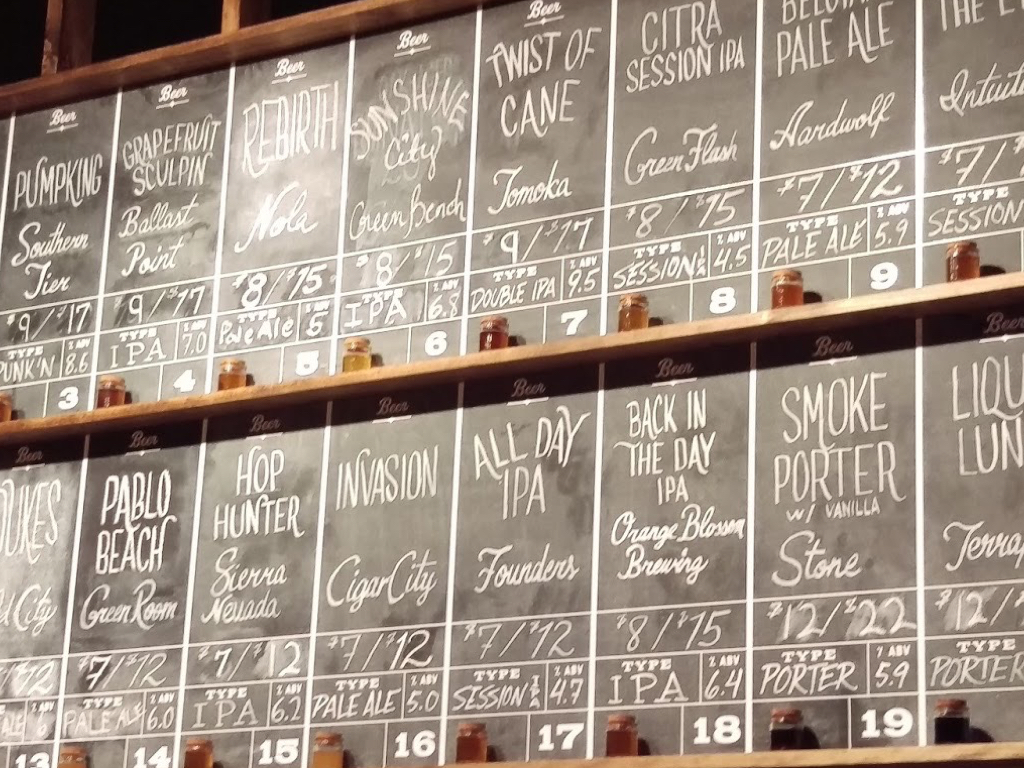 Beer
PUMPKING
Southern
Tier
$9/$17
TYPE
PUNK'N
% ABV
8.6
3
Beer
GRAPEFRUIT
SCULPIN
Ballast
Point
$9/$17
TYPE
IPA
% ABV
7.0
4
Beer
REBIRTH
Nola
$8/$15
TYPE
Pale Ale
% ABV
5
5
Beer
SUNSHINE
City
Green Bench
$8/$15
TYPE
IPA
% ABV
6.8
6
Beer
TWIST OF
CANE
Tomoka
$9/$17
TYPE
DOUBLE IPA
% ABV
9.5
7
CITRA
SESSION IPA
Green Flash
$8/$15
TYPE
SESSION IPA
% ABV
4.5
8
PALE ALE
Aardwolf
$7/$12
TYPE
PALE ALE
% ABV
5.9
9
THE
$7/
TYPE
SESSION
Beer
City
12
6
13
Beer
PABLO
BEACH
Green Room
$7/$12
TYPE
PALE ALE
% ABV
6.0
14
Beer
HOP
HUNTER
Sierra
Nevada
$7/$12
TYPE
IPA
% ABV
6.2
15
Beer
INVASION
Cigar City
$7/$12
TYPE
PALE ALE
% ABV
5.0
16
Beer
ALL DAY
IPA
Founders
$7/$12
TYPE
SESSION IPA
% ABV
4.7
17
Beer
BACK IN
THE DAY
IPA
Orange Blossom
Brewing
$8/$15
TYPE
IPA
% ABV
6.4
18
Beer
SMOKE
PORTER
W/ VANILLA
Stone
$12/$22
TYPE
PORTER
% ABV
5.9
19
Beer
$12/
TYPE
PORTER